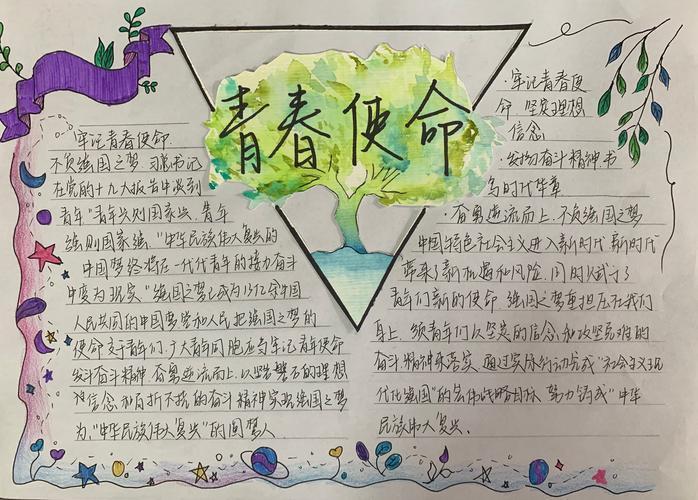 青春使命
牢记青春使命
不负强国之梦 习总书记
在党的十九大报告中谈到
青年"青年兴则国家兴、青年
强则国家强、"中华民族伟大复兴的
中国梦终将在一代代青年的接力奋斗
中变为现实"强国之梦已成为13亿中国
人民共同的中国梦 党和人民把强国之梦的
使命交于青年们,广大青年同胞应当牢记青年使命
发扬奋斗精神.奋勇逆流而上.以坚如磐石的理想
信念和百折不挠的奋斗精神实现强国之梦
为"中华民族伟大复兴"的圆梦人
·牢记青春使
命 坚定理想
信念
·发扬奋斗精神书
写时代华章
·奋勇逆流而上.不负强国之梦
中国特色社会主义进入新时代 新时代
带来了新机遇和风险 同时赋予了
青年们新的使命 强国之梦重担压在我们
身上.须青年们以坚定的信念和攻坚克难的
奋斗精神来落实.通过实际行动完成"社会主义现
代化强国"的宏伟战略目标 努力完成"中华
民族伟大复兴.